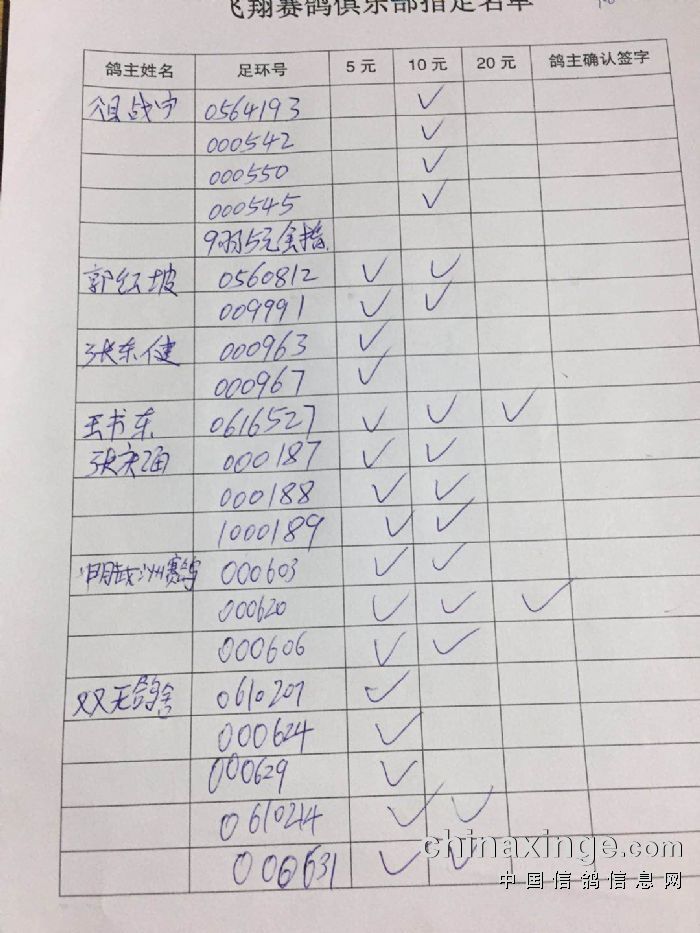 飞翔赛鸽俱乐部指定名单
鸽主姓名 足环号 5元 10元 20元 鸽主确认签字
战宁 0564193 ✓
000542 ✓
000550 ✓
000545 ✓
9羽5元全指
郭红坡 0560812 ✓ ✓
009991 ✓ ✓
张东健 000963 ✓
000967 ✓
王书东 0616527 ✓ ✓ ✓
张 000187 ✓ ✓
000188 ✓ ✓
1000189 ✓ ✓
赛鸽 000603 ✓ ✓
000620 ✓ ✓ ✓
000606 ✓ ✓
双天鸽舍 0610207 ✓
000624 ✓
000629 ✓
0610214 ✓ ✓
000631 ✓ ✓
chinaxinge.com
中国信鸽信息网